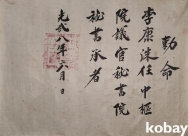 勅命
李康洙任中樞
院議官秘書院
秘書丞者
光武八年六月 日
kobay